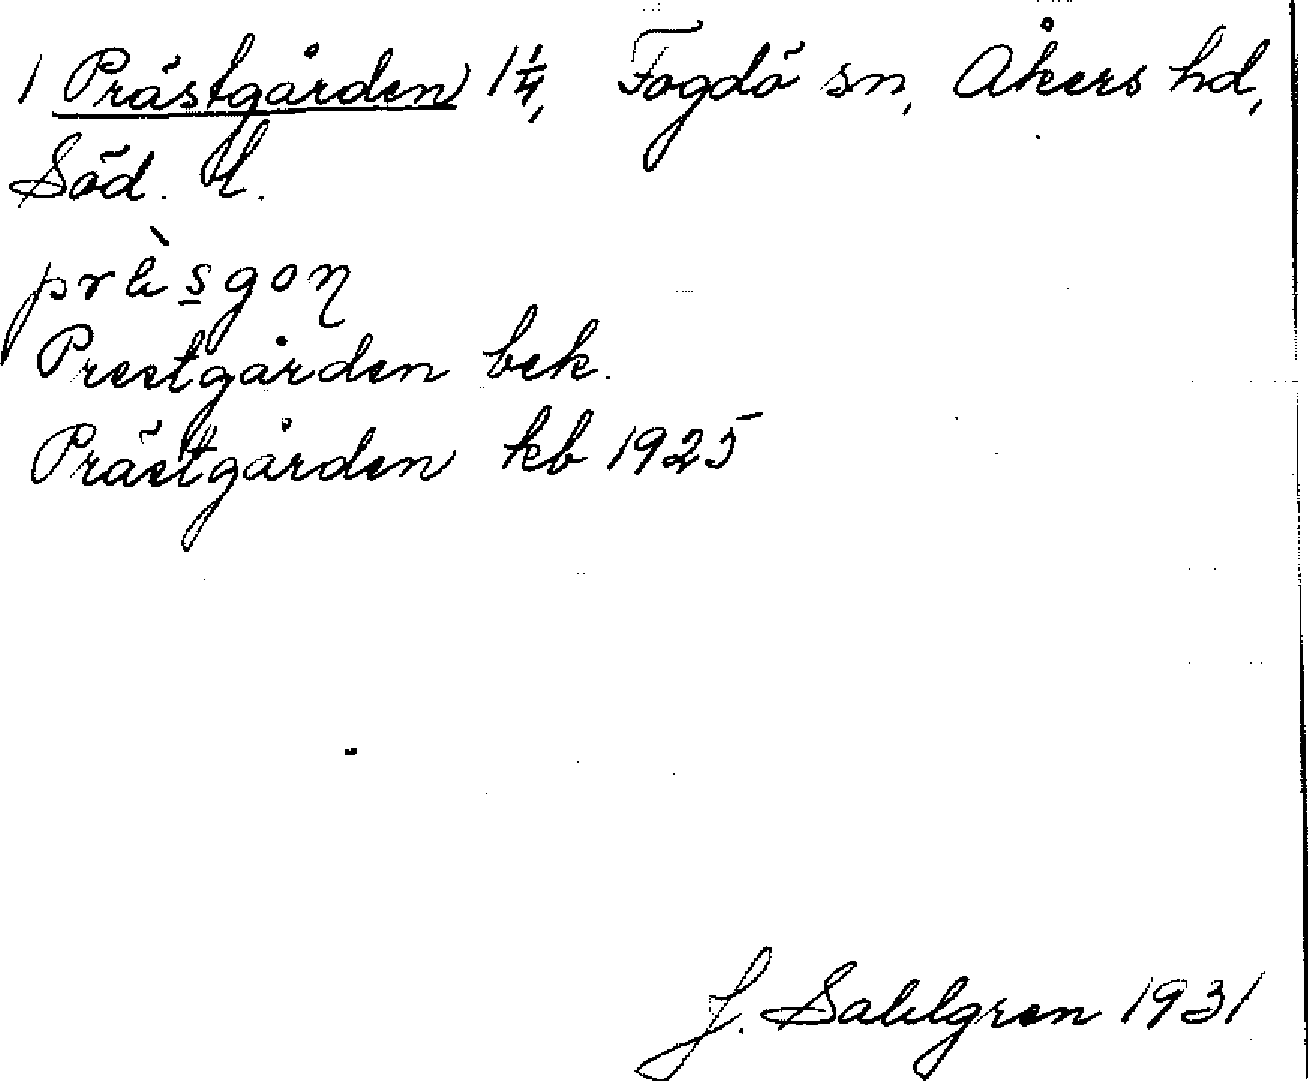 1 Prästgården 1 1/4, Fogdö sn, Åkers hd,
Söd. l.
Prestgården bek.
Prästgården kb 1925
J. Sahlgren 1931